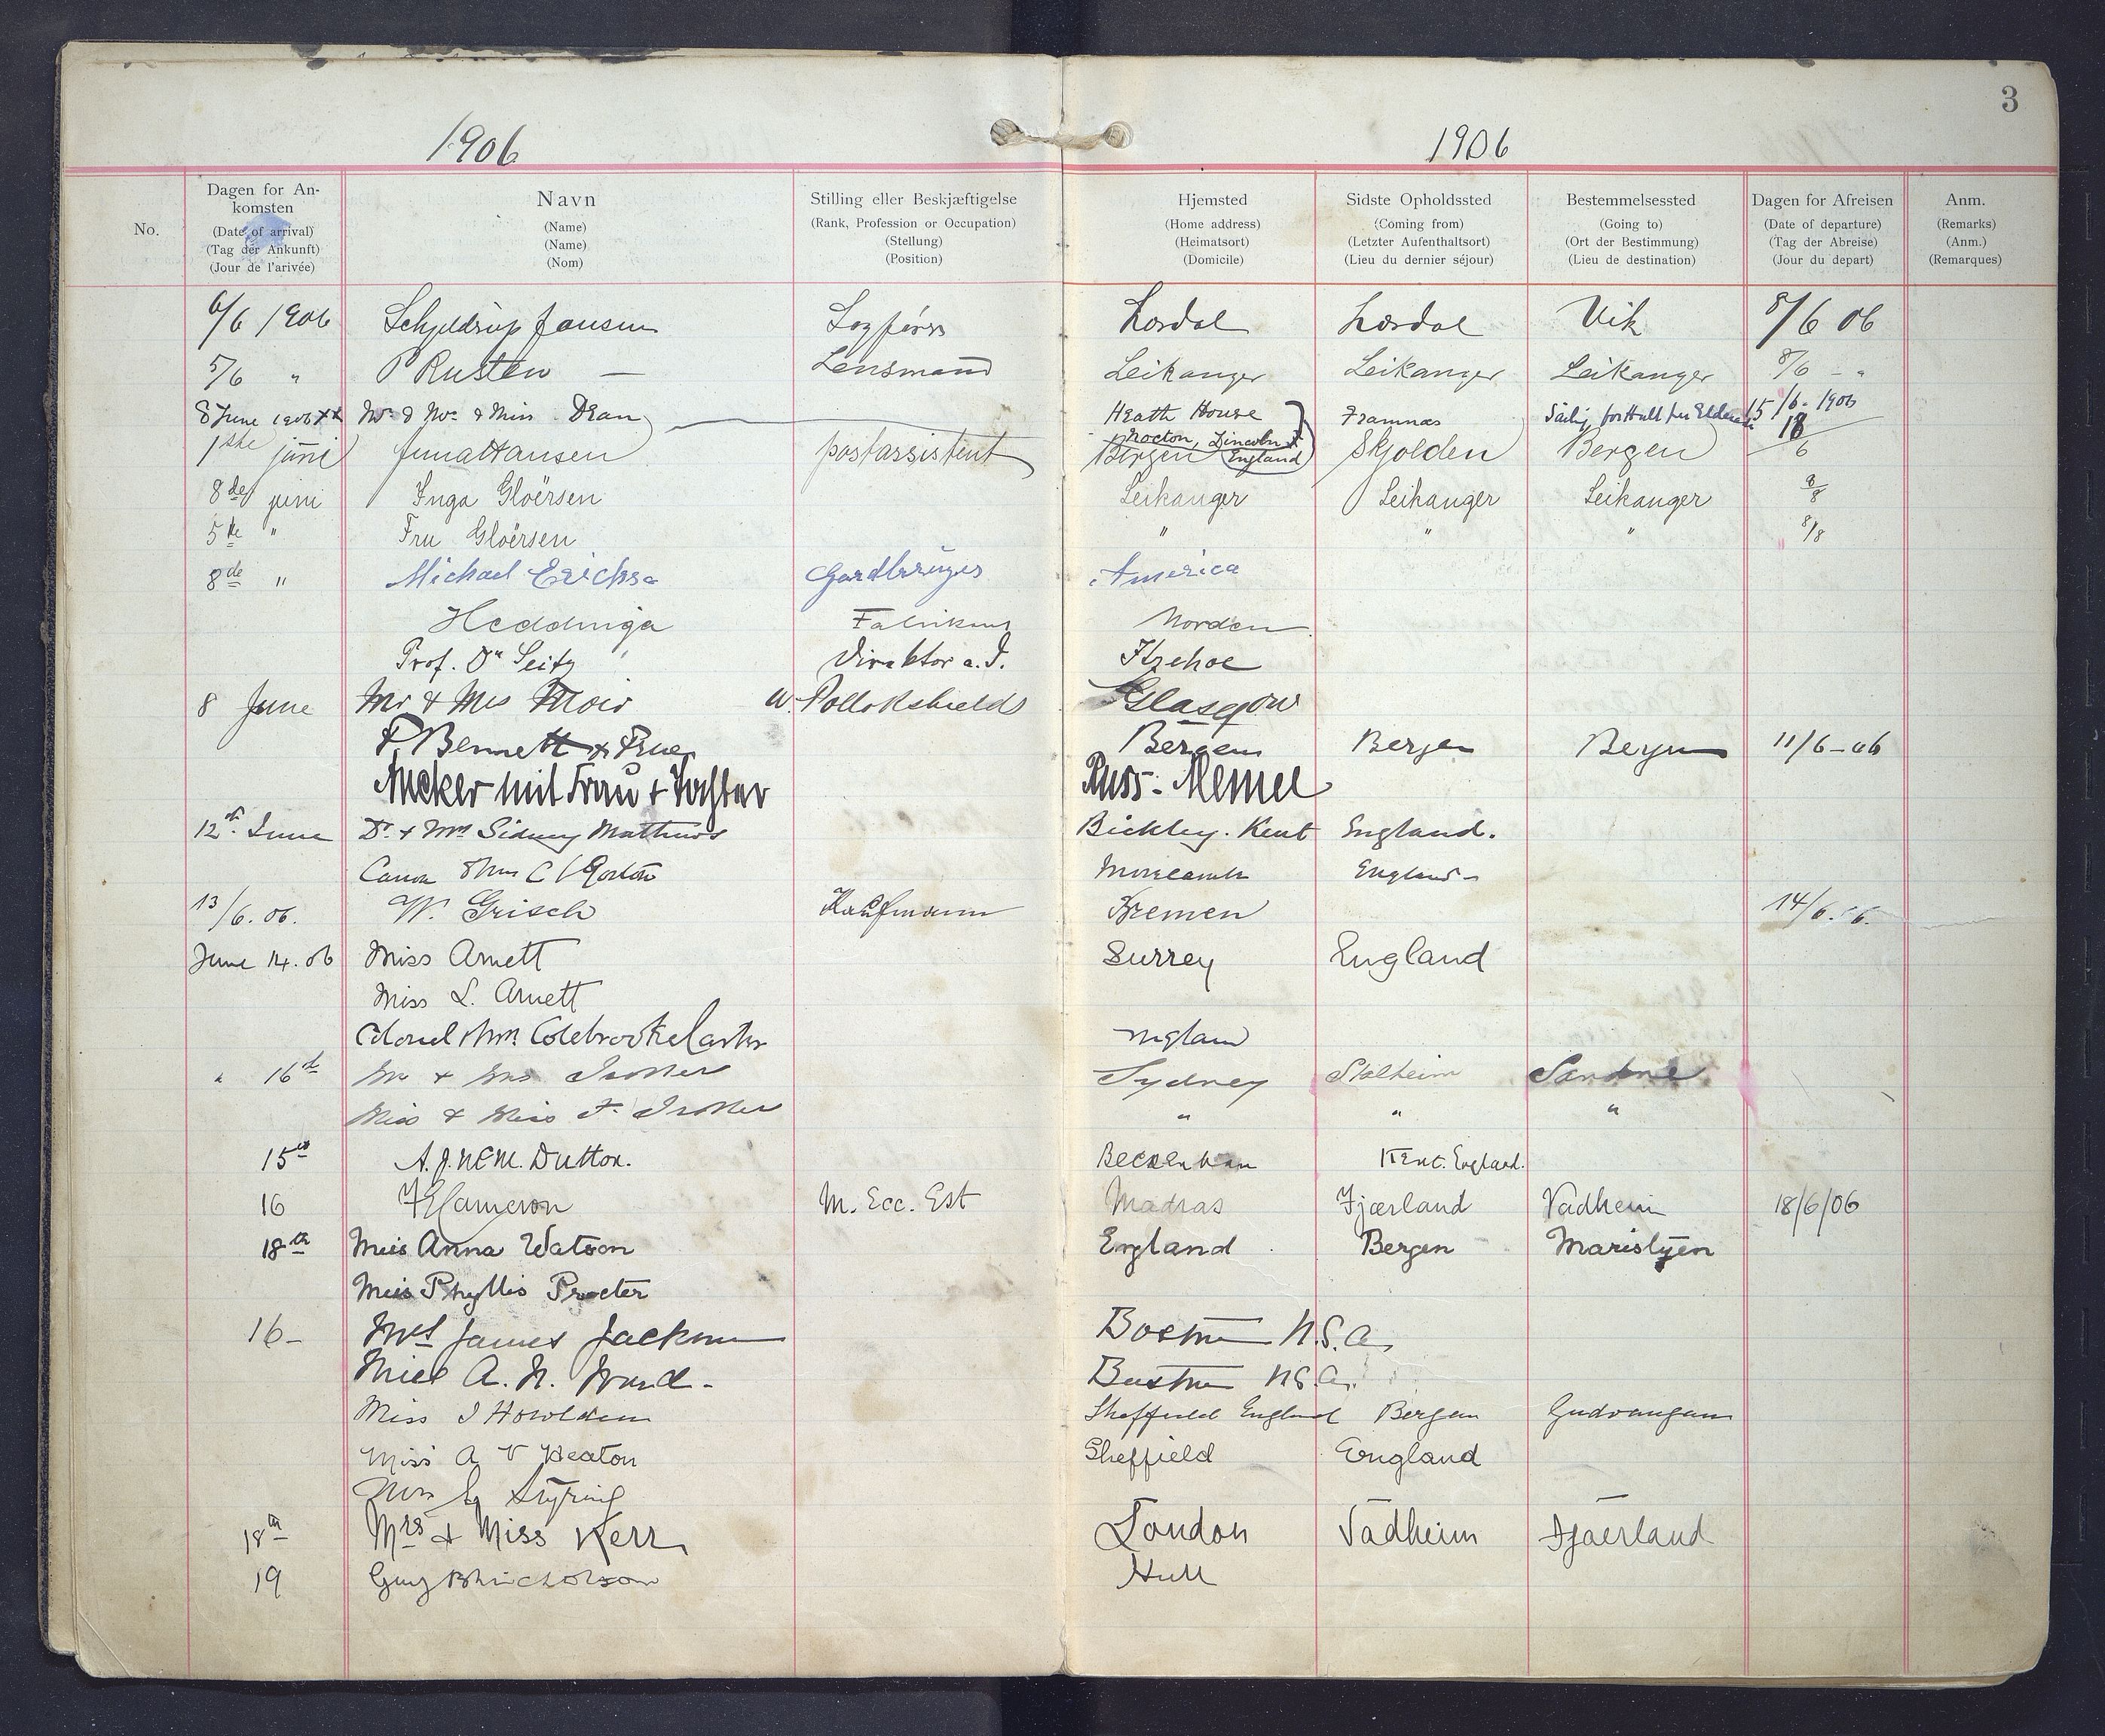 3
1906 1906
No. Dagen for An- Navn Stilling eller Beskjæftigelse Hjemsted Sidste Opholdssted Bestemmelsessted Dagen for Afreisen Anm.
komsten
(Date of arrival) (Name) (Rank, Profession or Occupation) (Home address) (Coming from) (Going to) (Date of departure) (Remarks)
(Tag der Ankunft) (Name) (Stellung) (Heimatsort) (Letzter Aufenthaltsort) (Ort der Bestimmung) (Tag der Abreise) (Anm.)
(Jour de l'arivée) (Nom) (Position) (Domicile) (Lieu du dernier séjour) (Lieu de destination) (Jour du depart) (Remarques)
6/6 1906 Schjeldrup Jansen Sagfører Lærdal Lærdal Vik 8/6 06
5/6 " P Rusten — Lensmand Leikanger Leikanger Leikanger 8/6 - "
8 June 1906 Mr & Mrs & Miss Dean Heath House Framnæs 15/6 - 1906
Nocton, Lincoln
England
1ste juni Hansen postassistent Bergen Skjolden Bergen 18/6
8de juni Inga Gloërsen Leikanger Leikanger Leikanger 8/8
5te " Fru Gloërsen " " " 8/8
8de " Michael Gardbruger America
Heddinga Norden
Prof. Dr Seitz Direktor a. D. Itzehoe
8 June Mr & Mrs Moir W. Pollokshields Glasgow
F. Bennett & Frue Bergen Bergen Bergen 11/6-06
Ancker mit Frau & Tochter Russ: Memel
12th June Dr. & Mrs Sidney Matthews Bickley. Kent England.
Canon & Mrs C V Gorton Morecambe England -
13/6. 06. W. Grisch Kaufmann Bremen 14/6. 06.
June 14. 06 Miss Arnett Surrey England
Miss L. Arnett
Colonel & Mrs Colebrooke Carter England
" 16th Mr & Mrs Trotter Sydney Stalheim Sandene
Miss & Miss F. Trotter " " "
15th A. J. N E M. Dutton. Beckenham Kent. England.
16 Cameron M. Ecc. Est Madras Fjærland Vadheim 18/6/06
18th Miss Anna Watson England Bergen Maristuen
Miss Phyllis Procter
16- Mrs James Jackson Boston U.S.A.
Miss A. N. Ward - Boston U.S.A.
Miss J Howldin Sheffield England Bergen Gudvangen
Miss A V Heaton Sheffield England
Styring
18th Mrs & Miss Kerr London Vadheim Fjaerland
19 Guy B Nicholson Hull